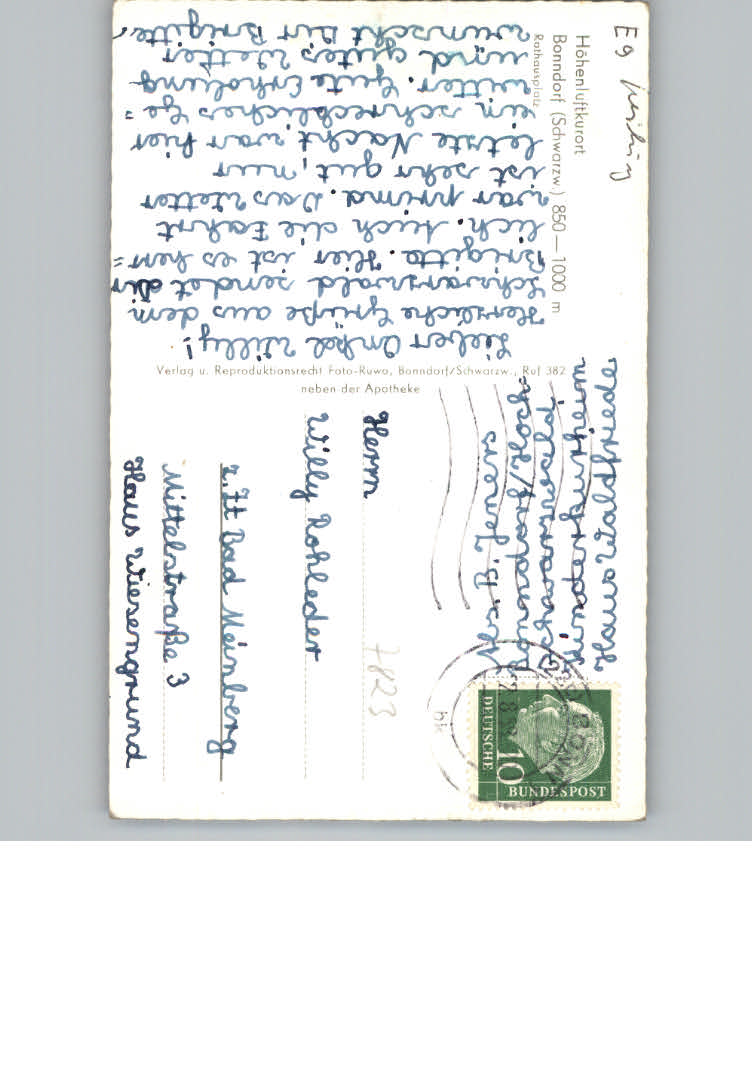 Höhenluftkurort
Bonndorf (Schwarzw.) 850 — 1000 m
Rathausplatz
E9
Lieber Onkel Willy!
Herzliche Grüße aus dem
Schwarzwald sendet Dir
Brigitte. Hier ist es herr=
lich. Auch die Fahrt
war prima. Das Wetter
ist sehr gut, nur
letzte Nacht war hier
ein schreckliches Ge=
witter. Gute Erholung
und gutes Wetter
wünscht dir Brigitte.
Verlag u. Reproduktionsrecht Foto-Ruwo, Bonndorf/Schwarzw., Ruf 382
neben der Apotheke
Haus Waldfriede
Schwarzwald
Bonndorf/Hoch-
DEUTSCHE
10
BUNDESPOST
BONN
bk
7823
Herrn
Willy Rohleder
z. Zt Bad Meinberg
Mittelstraße 3
Haus Wiesengrund